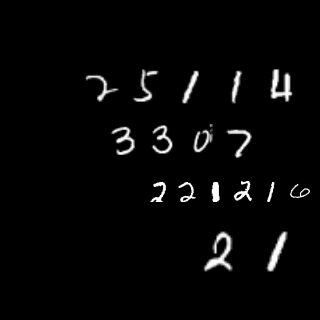 25114
3307
221216
21